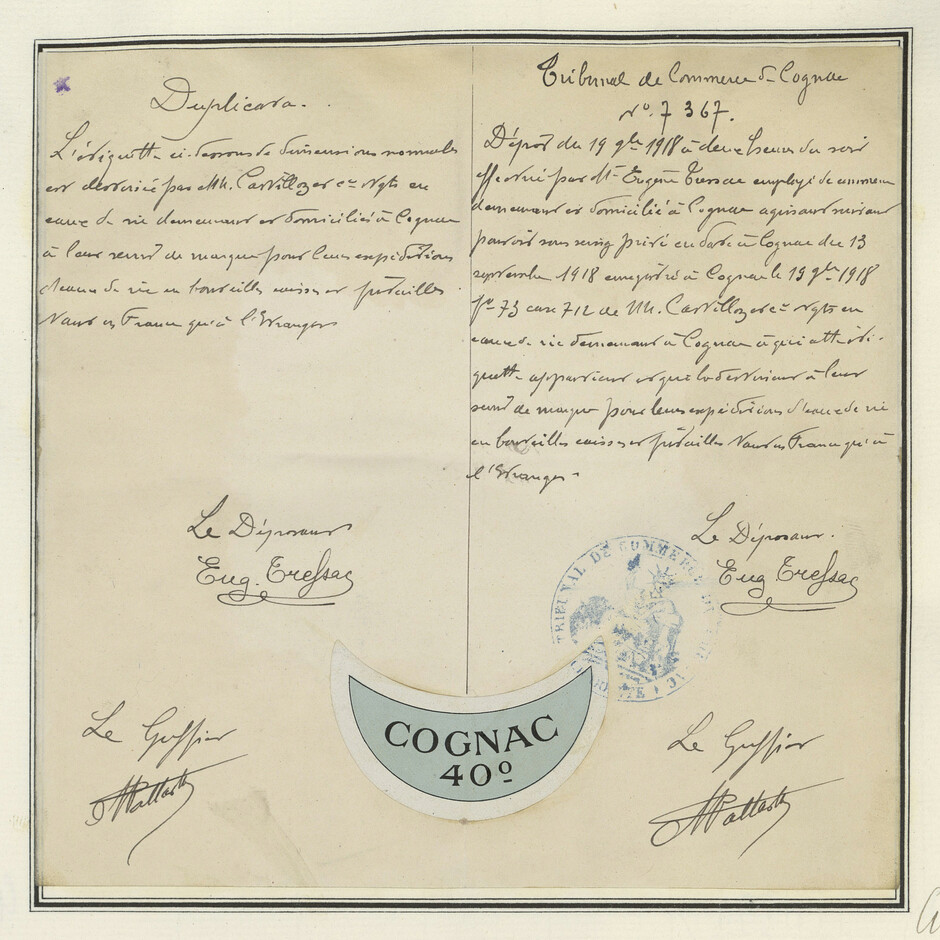 Duplicata.
L'étiquette ci-dessous de dimensions normales
est destinée par MM. Castillon et Cie Ngts en
eaux de vie demeurant et domiciliés à Cognac
à leur servir de marque pour leurs expéditions
d'eaux de vie en bouteilles caisses et futailles
tant en France qu'à l'Etranger
Le Déposant
Eug. Tressac
Le Greffier
Tribunal de Commerce de Cognac
No. 7 367.
Dépôt du 19 9bre 1918 à deux heures du soir
effectué par Mr Eugène Tressac employé de commerce
demeurant et domicilié à Cognac agissant suivant
pouvoir sous seing privé en date à Cognac du 13
septembre 1918 enregistré à Cognac le 19 9bre 1918
fo 73 case 712 de MM. Castillon et Cie Ngts en
eaux de vie demeurant à Cognac à qui cette éti-
quette appartient et qui la destinent à leur
servir de marque pour leurs expéditions d'eaux de vie
en bouteilles caisses et futailles tant en France qu'à
l'Etranger
Le Déposant.
Eug Tressac
TRIBUNAL DE COMMERCE DE COGNAC
Le Greffier
COGNAC
40º